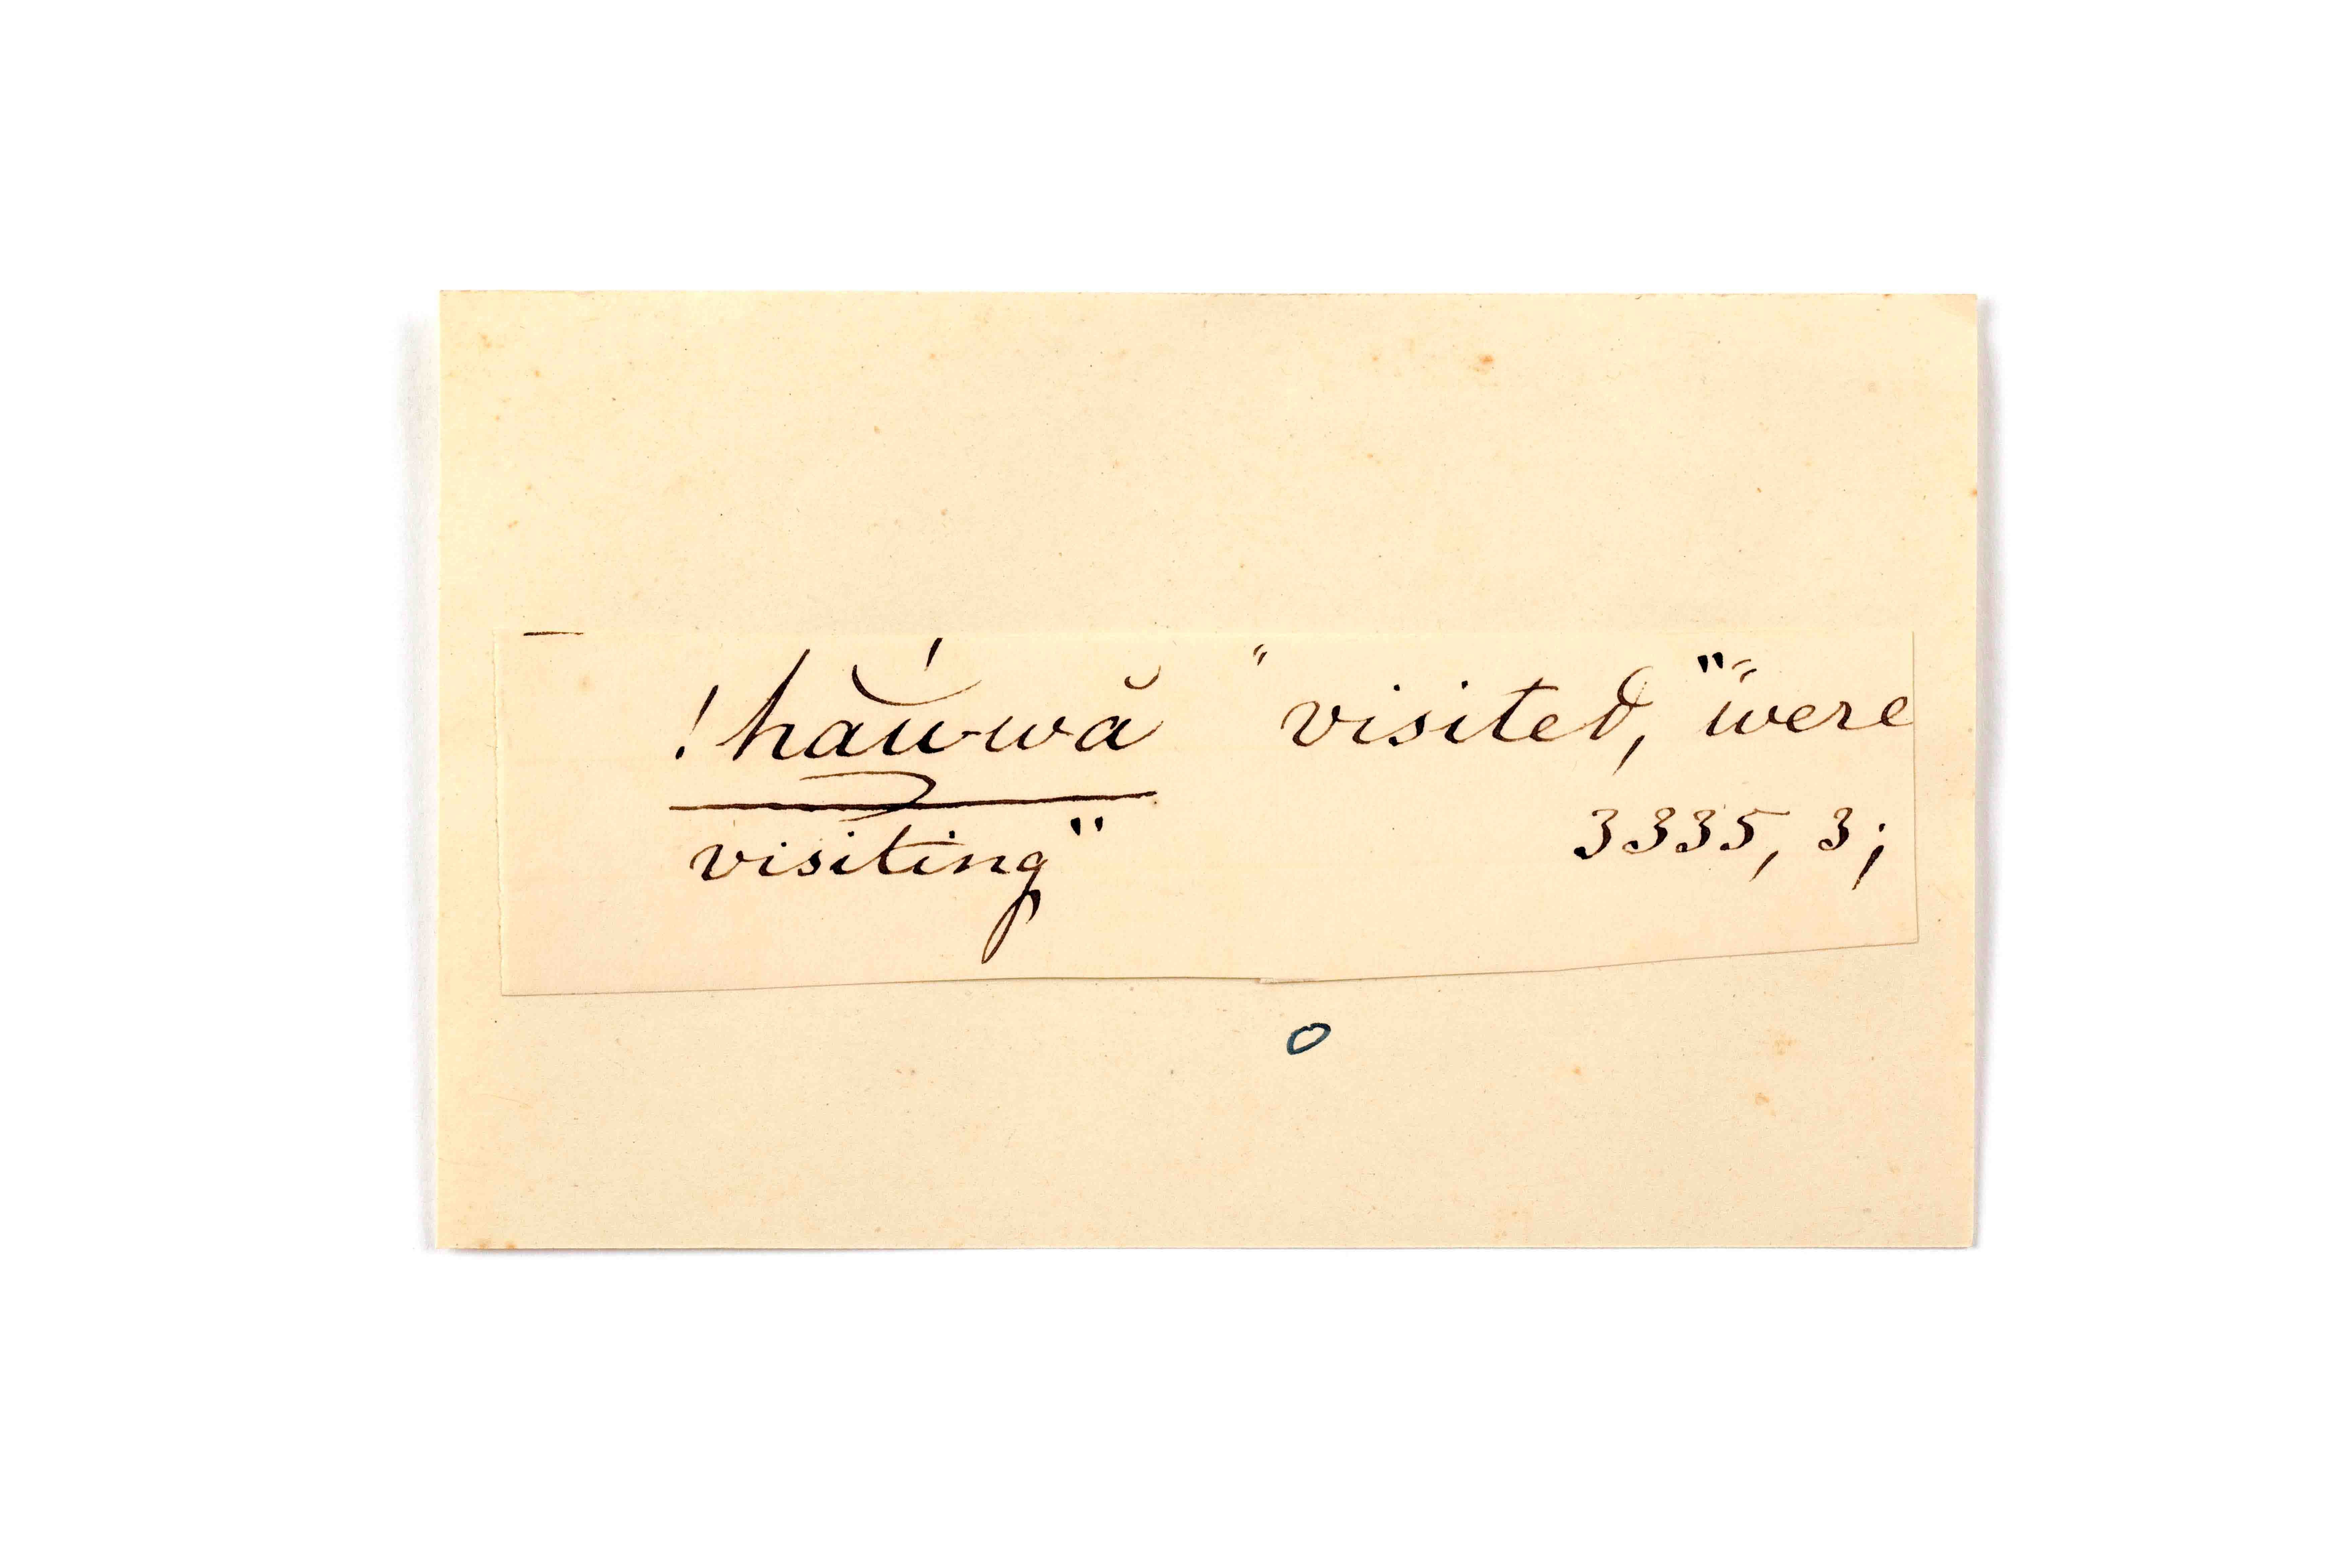 !hắu-wă "visited," "were
visiting" 3335, 3;
o